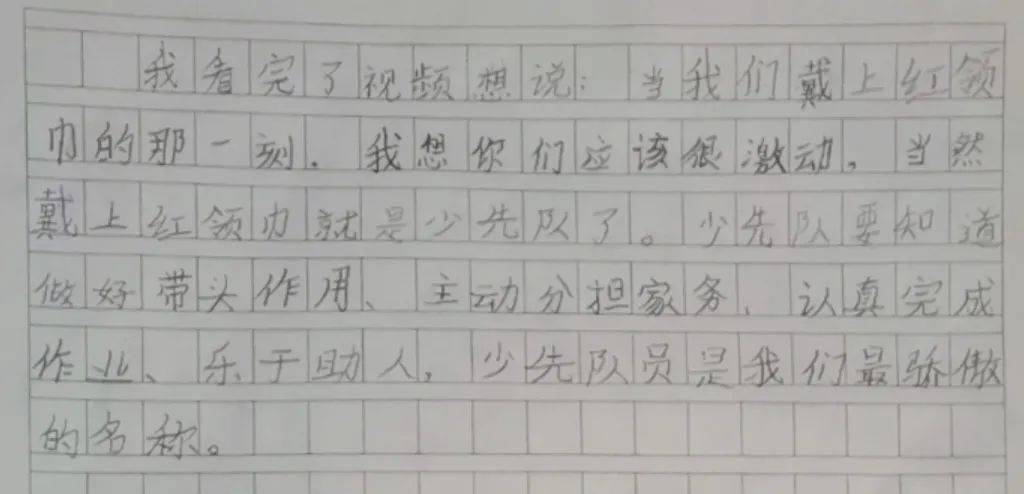 我看完了视频想说：当我们戴上红领
巾的那一刻，我想你们应该很激动，当然
戴上红领巾就是少先队了。少先队要知道
做好带头作用、主动分担家务、认真完成
作业、乐于助人，少先队员是我们最骄傲
的名称。